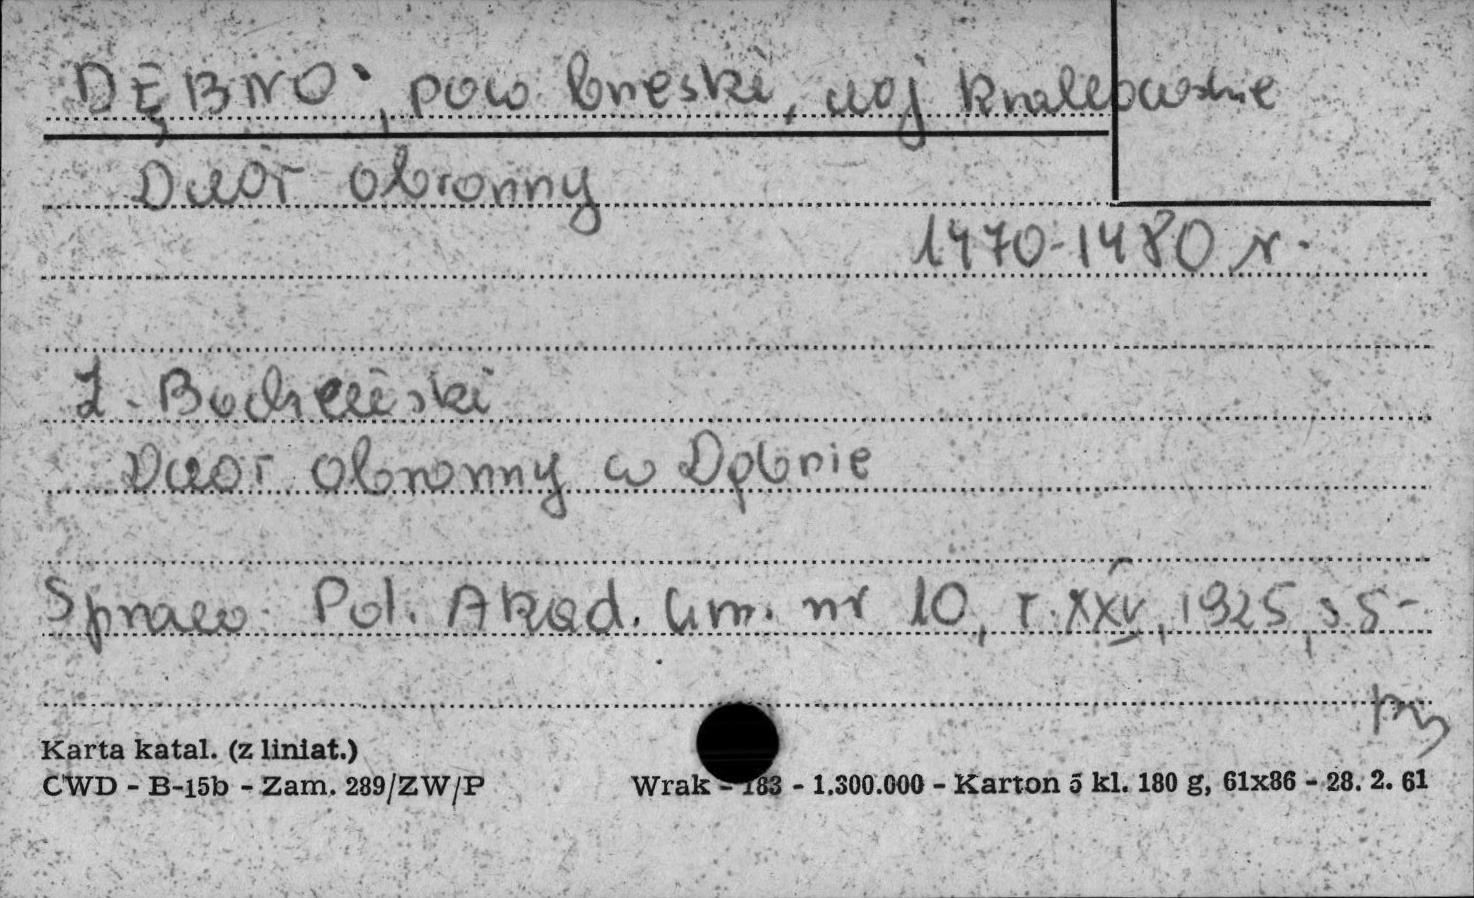 DĘBNO, pow brzeski, woj krakowskie
Dwór obronny
1470-1480 r.
Z. Bocheński
Dwór obronny w Dębnie
Spraw. Pol. Akad. Um. nr 10, r. XXV, 1925, s. 5-
Karta katal. (z liniat.)
CWD - B-15b - Zam. 289/ZW/P
Wrak - 183 - 1.300.000 - Karton 5 kl. 180 g, 61x86 - 28. 2. 61